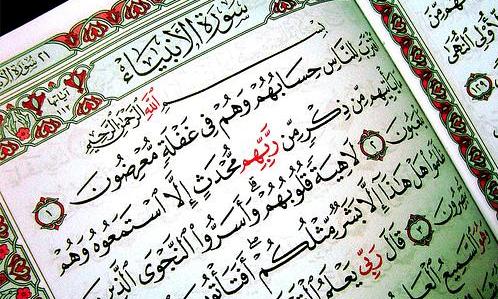 سورة الأنبياء
بِسْمِ اللَّهِ الرَّحْمَٰنِ الرَّحِيمِ
ٱقْتَرَبَ لِلنَّاسِ حِسَابُهُمْ وَهُمْ فِى غَفْلَةٍ مُّعْرِضُونَ ١
مَا يَأْتِيهِم مِّن ذِكْرٍ مِّن رَّبِّهِم مُّحْدَثٍ إِلَّا ٱسْتَمَعُوهُ وَهُمْ
يَلْعَبُونَ ٢ لَاهِيَةً قُلُوبُهُمْ وَأَسَرُّوا۟ ٱلنَّجْوَى ٱلَّذِينَ
ظَلَمُوا۟ هَلْ هَٰذَآ إِلَّا بَشَرٌ مِّثْلُكُمْ أَفَتَأْتُونَ
تُبْصِرُونَ ٣ قَالَ رَبِّى يَعْلَمُ
ٱلسَّمِيعُ